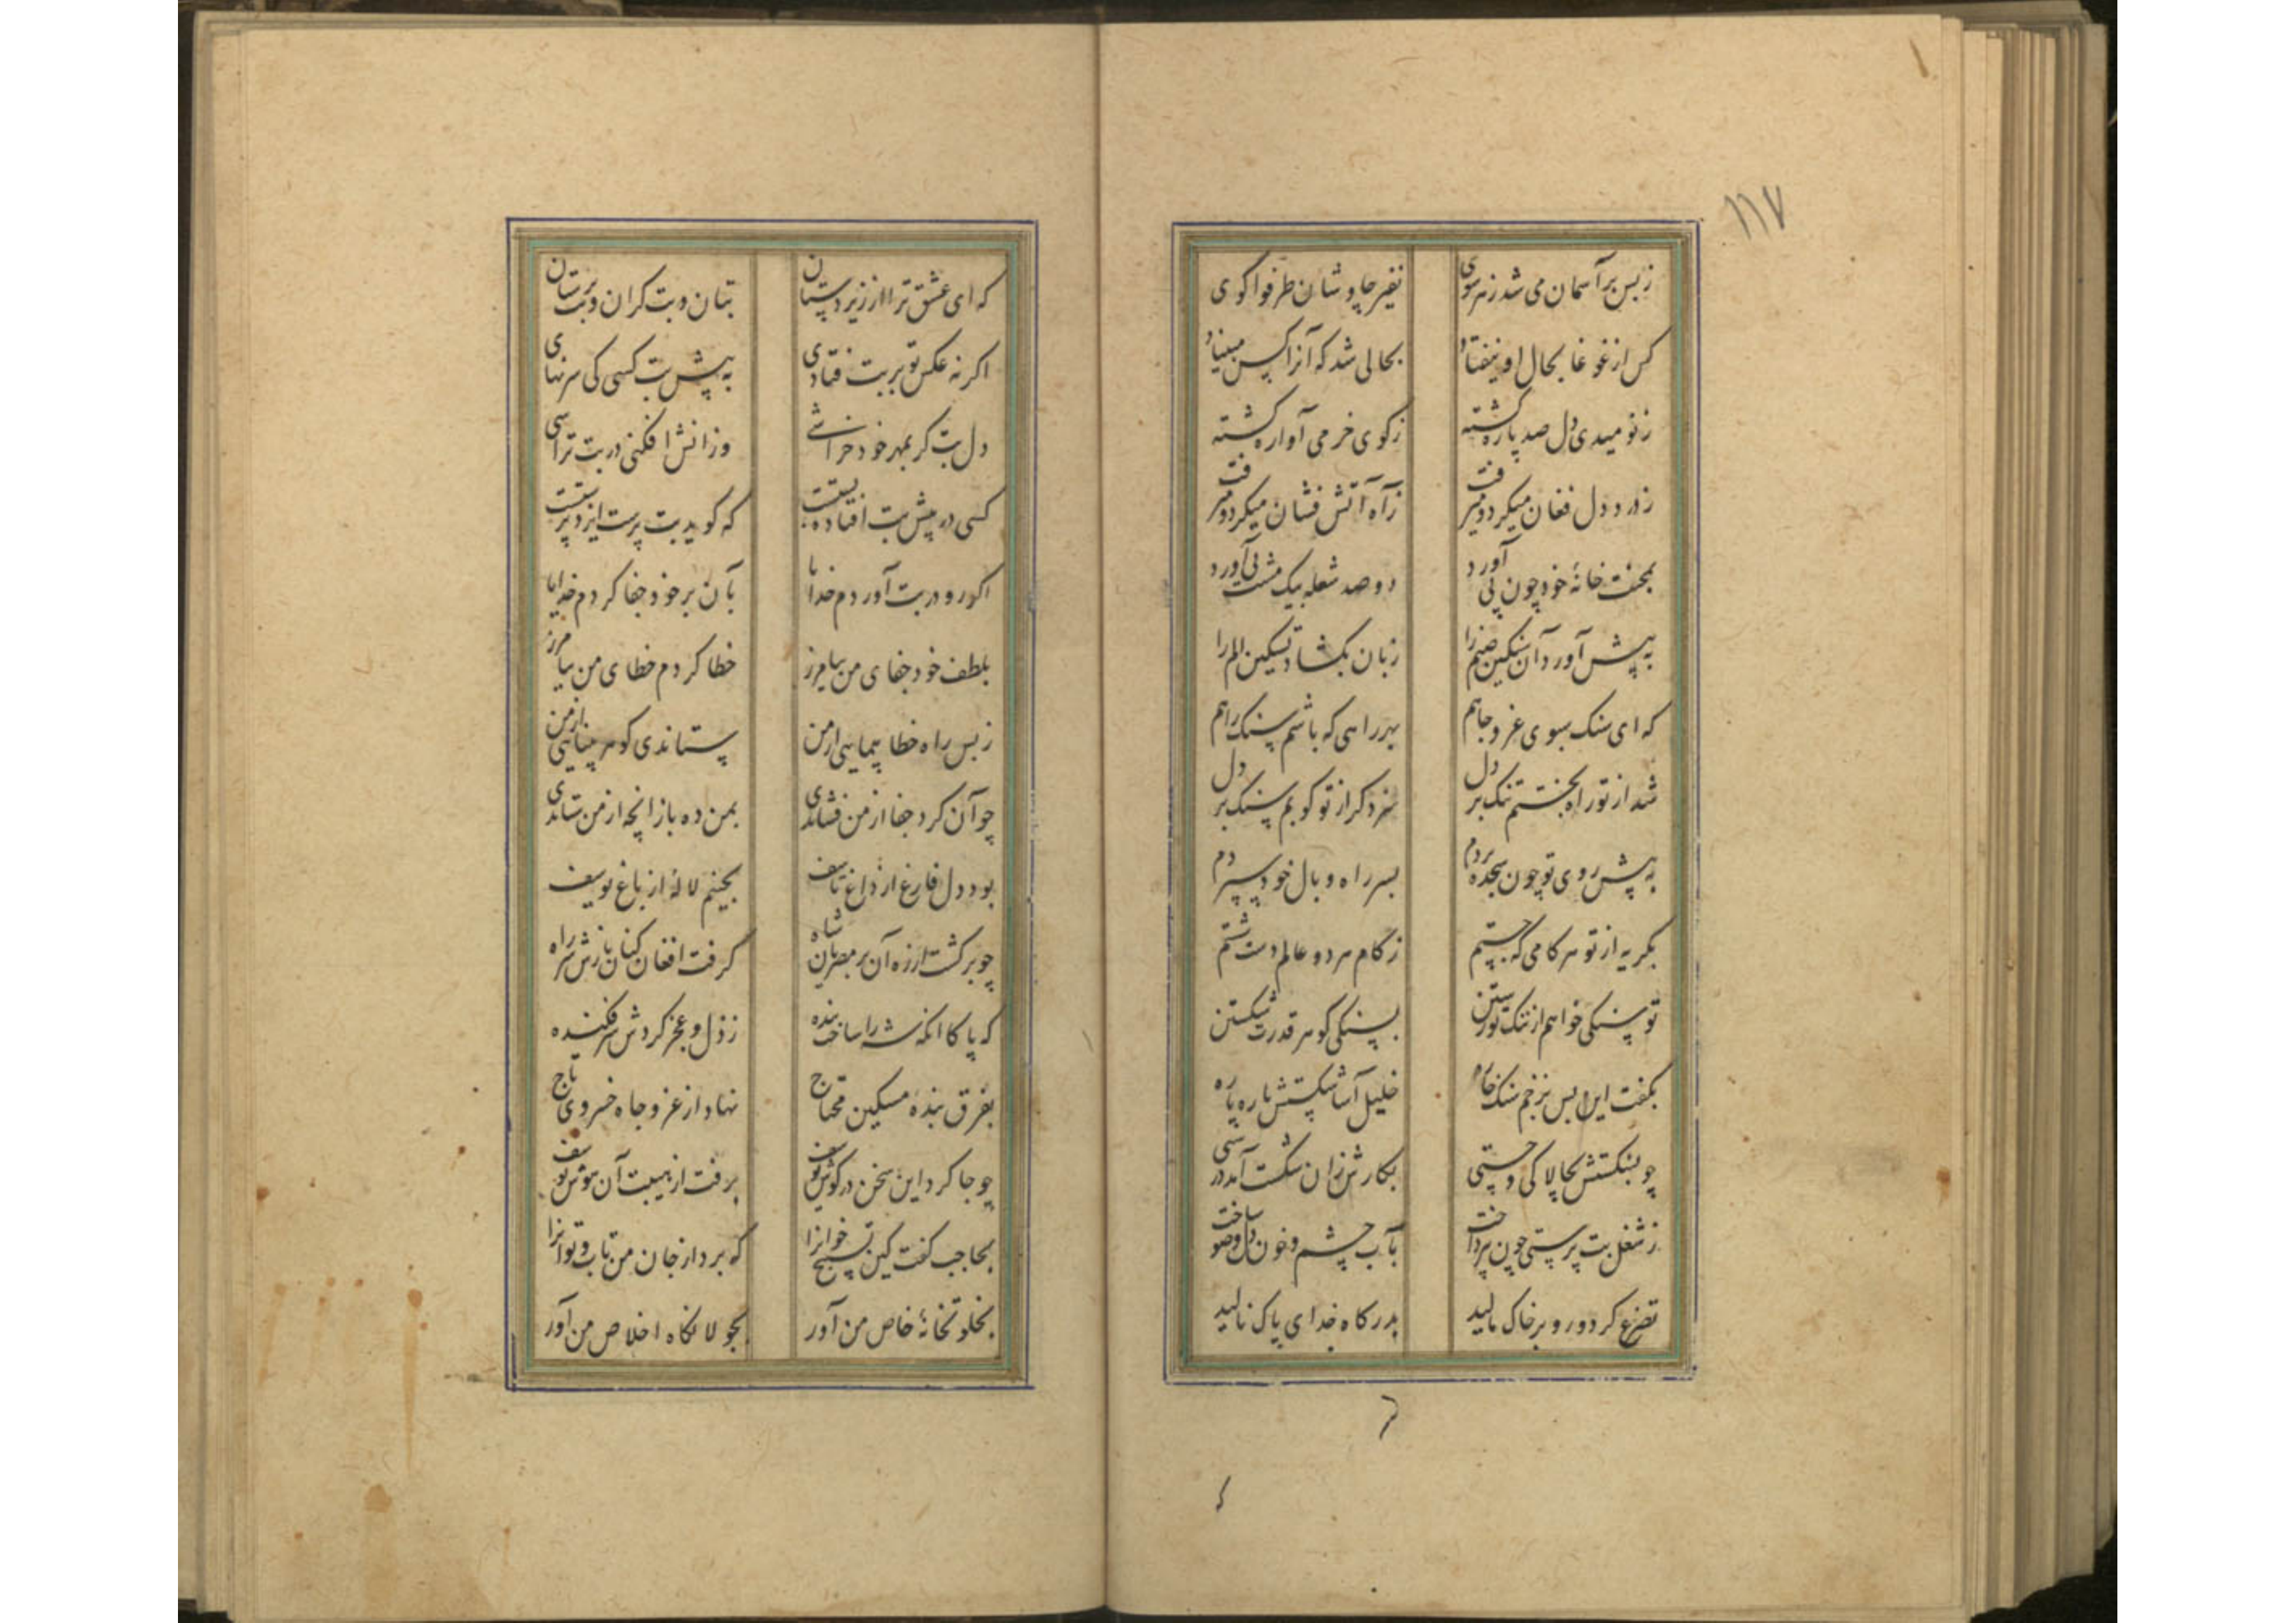 ۱۱۷
ز بس بر آسمان می شد ز هر سوی نفیر چاوشان طرقوا کوی
کس از غوغا بحال او نیفتاد بحالی شد که آنرا کس مبیناد
ز نومیدی دل صد پاره کشته ز کوی خرمی آواره کشته
ز درد دل فغان میکرد و میرفت ز آه آتش فشان میکرد و میرفت
بمحنت خانهٔ خود چون پی آورد دو صد شعله بیک مشت نی آورد
به پیش آورد آن سنکین صنم را زبان بکشاد تسکین الم را
که ای سنک سبوی عز و جاهم بهر راهی که باشم سنک راهم
شد از تو راه بختم تنک بر دل سزد کر از تو کوبم سنک بر دل
به پیش روی تو چون سجده بردم بسر راه وبال خود سپردم
بکریه از تو هر کامی که جستم ز کام هر دو عالم دست شستم
تو سنکی خواهم از ننک تو رستن بسنکی کوهر قدرت شکستن
بکفت این پس بزخم سنک خاره خلیل آسا شکستش پاره پاره
چو بشکستش بچالاکی و چستی بکارش زان شکست آمد درستی
ز شغل بت پرستی چون بپرداخت بآب چشم و خون دل وضو ساخت
تضرع کرد و رو بر خاک مالید بدرکاه خدای پاک نالید
که ای عشق ترا از زیردستان بتان و بت کران و بت پرستان
اکر نه عکس تو بر بت فتادی به پیش بت کسی کی سر نهادی
دل بت کر بمهر خود خراشی وز آنش افکنی در بت تراشی
کسی در پیش بت افتاده پستست که کوید بت پرست ایزد پرستست
اکر رو در بت آوردم خدایا بآن بر خود جفا کردم خدایا
بلطف خود جفای من بیامرز خطا کردم خطای من بیامرز
ز بس راه خطا پیمایی از من ستاندی کوهر بینایی از من
چو آن کرد جفا از من فشاندی بمن ده باز آنچه از من ستاندی
بود دل فارغ از داغ تاسف بچینم لالهٔ از باغ یوسف
چو برکشت از ره آن بر مصریان شاه کرفت افغان کنان بازش سر راه
که پاکا آنکه شه را ساخت بنده ز ذل و عجز کردش سر فکنده
بفرق بندهٔ مسکین محتاج نهاد از عز و جاه خسروی تاج
چو جا کرد این سخن در کوش یوسف برفت از هیبت آن هوش یوسف
بحاجب کفت کین تسبیح خوانرا که برد از جان من تاب و توانرا
بخلوتخانهٔ خاص من آور بجولانکاه اخلاص من آور